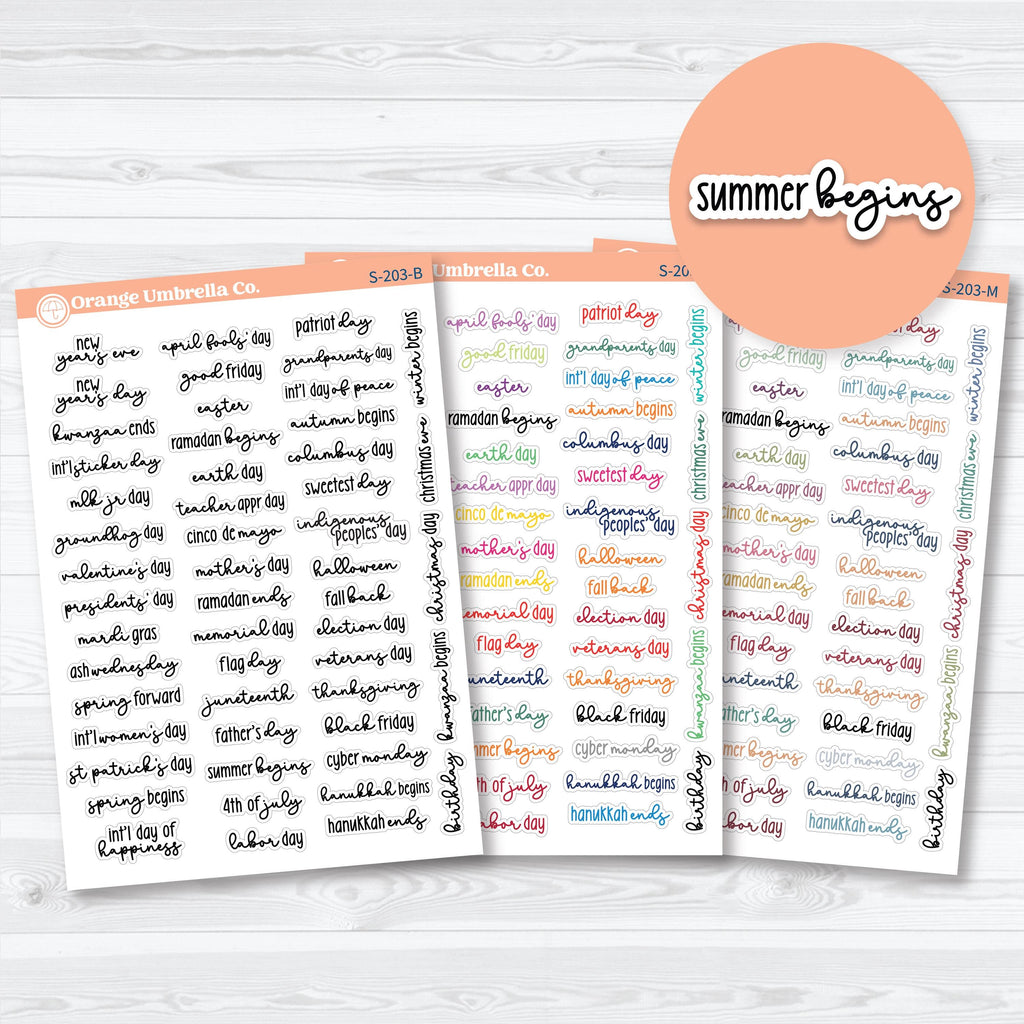 summer begins
S-203-B
Orange Umbrella Co.
new
year's eve
new
year's day
kwanzaa ends
int'l sticker day
mlk jr day
groundhog day
valentine's day
presidents' day
mardi gras
ash wednesday
spring forward
int'l women's day
st patrick's day
spring begins
int'l day of
happiness
april fools' day
good friday
easter
ramadan begins
earth day
teacher appr day
cinco de mayo
mother's day
ramadan ends
memorial day
flag day
juneteenth
father's day
summer begins
4th of july
labor day
patriot day
grandparents day
int'l day of peace
autumn begins
columbus day
sweetest day
indigenous
peoples' day
halloween
fall back
election day
veterans day
thanksgiving
black friday
cyber monday
hanukkah begins
hanukkah ends
winter begins
christmas eve
christmas day
kwanzaa begins
birthday
Umbrella Co.
S-20
april fools' day
good friday
easter
ramadan begins
earth day
teacher appr day
cinco de mayo
mother's day
ramadan ends
memorial day
flag day
juneteenth
father's day
summer begins
th of july
labor day
patriot day
grandparents day
int'l day of peace
autumn begins
columbus day
sweetest day
indigenous
peoples' day
halloween
fall back
election day
veterans day
thanksgiving
black friday
cyber monday
hanukkah begins
hanukkah ends
winter begins
christmas eve
christmas day
kwanzaa begins
birthday
S-203-M
good friday
easter
ramadan begins
earth day
teacher appr day
cinco de mayo
mother's day
ramadan ends
memorial day
flag day
juneteenth
father's day
summer begins
th of july
labor day
day
grandparents day
int'l day of peace
autumn begins
columbus day
sweetest day
indigenous
peoples' day
halloween
fall back
election day
veterans day
thanksgiving
black friday
cyber monday
hanukkah begins
hanukkah ends
winter begins
christmas eve
christmas day
kwanzaa begins
birthday